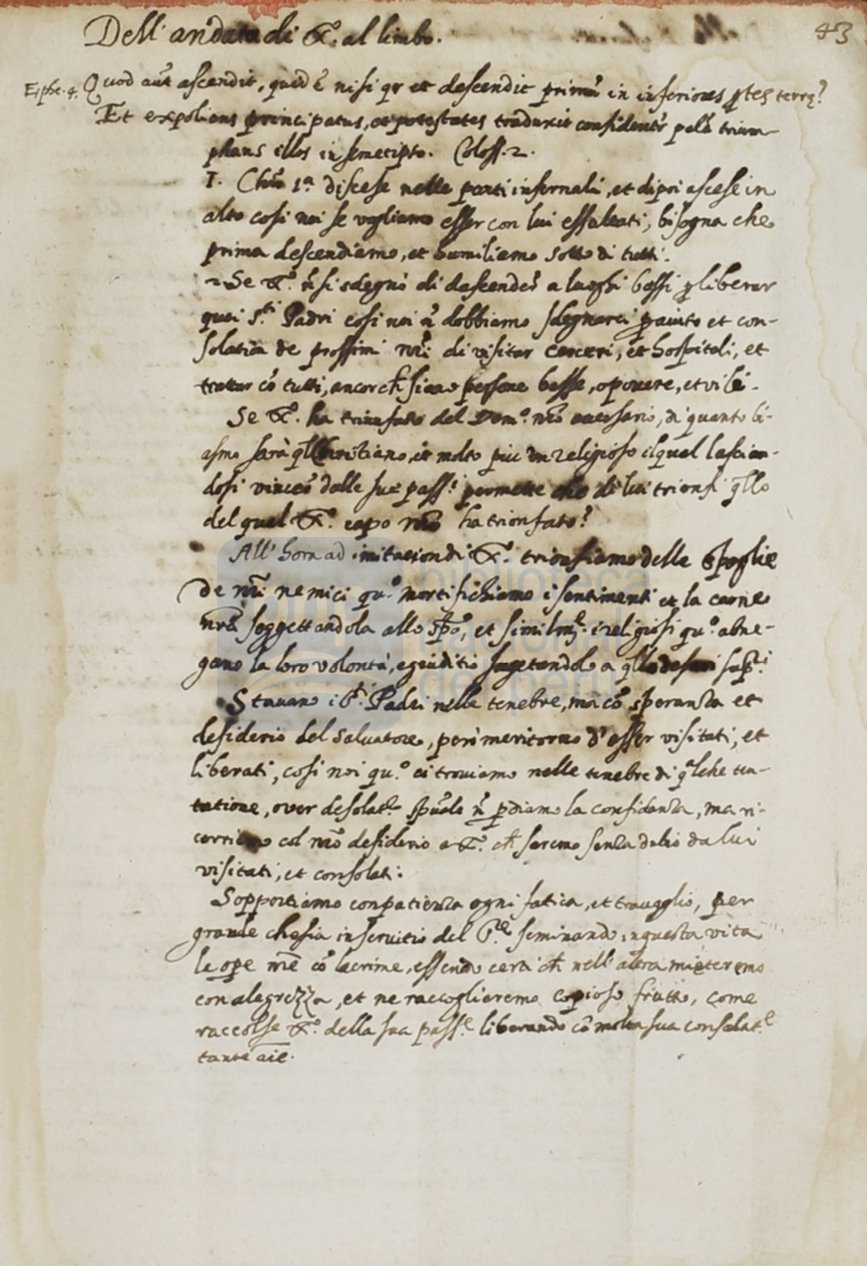 43
Dell' andata di Xº. al limbo.
Ephe. 4. Quod aūt ascendit, quid ē nisi qr et descendit primū in inferiores ptes terrę?
Et expolians principatus, et potestates traduxit confidentr palā trium-
phans illos in semetipso. Coloss. 2.
I. Chro 1ª discese nelle parti infernali, et dipoi ascese in
alto cosi noi se vogliamo esser con lui essaltati, bisogna che
prima descendiamo, et humiliamo sotto di tutti.
2 Se Xº. ñ si sdegnò di descender a luoghi bassi p liberar
quei S.ti Padri cosi noi ñ dobbiamo sdegnarci p aiuto et con-
solation de prossimi nri di visitar carceri, et hospitali, et
trattar cō tutti, ancor ch siano persone basse, o povere, et vili.
Se Xº. ha trionfato del Dem.º nro aversario, di quanto bi-
asmo sarà ql Christiano, et molto piu un religioso il qual lascian-
dosi vincer dalle sue pass.i permette che di lui trionfi qllo
del qual Xº. capo nro ha trionfato?
All' hora ad imitation di Xº. trionfiamo delle spoglie
de nri nemici qu.º mortifichiamo i sentimenti et la carne
nra soggettandola allo spō, et similm.e i religiosi qu.º abne-
gano la loro volontà, e giuditio sugetandolo a qllo de suoi sup.i
Stavano i S.ti Padri nelle tenebre, ma cō speranza et
desiderio del Salvatore, peró meritorno d'esser visitati, et
liberati, cosi noi qu.º ci troviamo nelle tenebre di qlche ten-
tatione, over desolat.e spūale ñ pdiamo la confidanza, ma ri-
corriamo col nro desiderio a Xº. ch saremo senza dubio da lui
visitati, et consolati.
Sopportiamo con patienza ogni fatica, et travaglio, per
grande che sia in servitio del S.re seminando in questa vita
le ope nre cō lacrime, essendo certi ch nell' altra mieteremo
con alegrezza, et ne raccoglieremo copioso frutto, come
raccolse Xº. della sua pass.e liberando cō molta sua consolat.e
tante aīe.